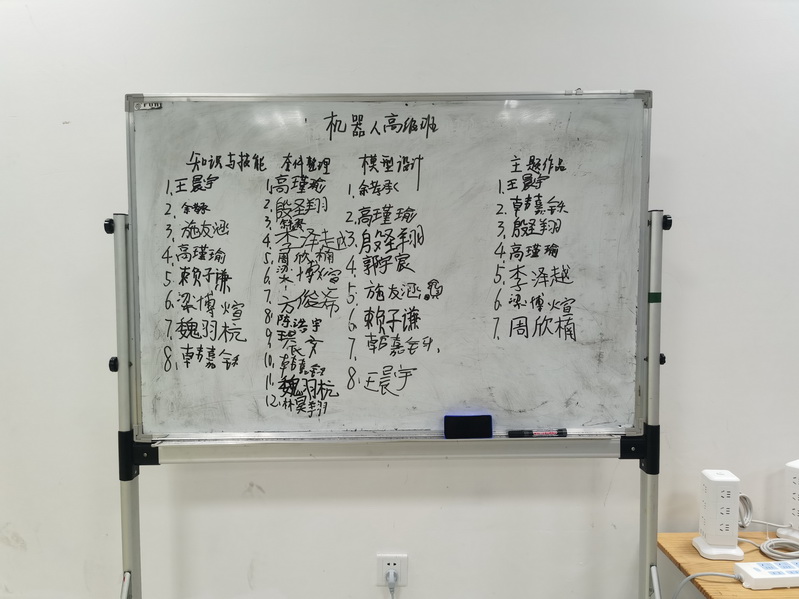 机器人高级班
知识与技能
1.王晨宇
2.余梓承
3.施友涵
4.高瑾瑜
5.赖子谦
6.梁博煊
7.魏羽杭
8.韩嘉铄
查件整理
1.高瑾瑜
2.殷圣翔
4.李泽越
5.周欣楠
6.梁博煊
7.方俊希
8.陈浩宇
9.王晨宇
10.韩嘉铄
11.魏羽杭
12.林昊翔
模型设计
1.余梓承
2.高瑾瑜
3.殷圣翔
4.郭宇宸
5.施友涵
6.赖子谦
7.韩嘉铄
8.王晨宇
主题作品
1.王晨宇
2.韩嘉铄
3.殷圣翔
4.高瑾瑜
5.李泽越
6.梁博煊
7.周欣楠